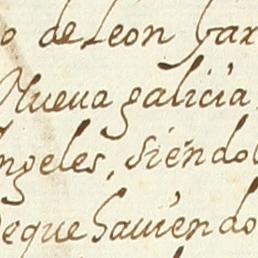 o de Leon y ax
Nueua galicia,
Angeles, siendo
deque hauiendo